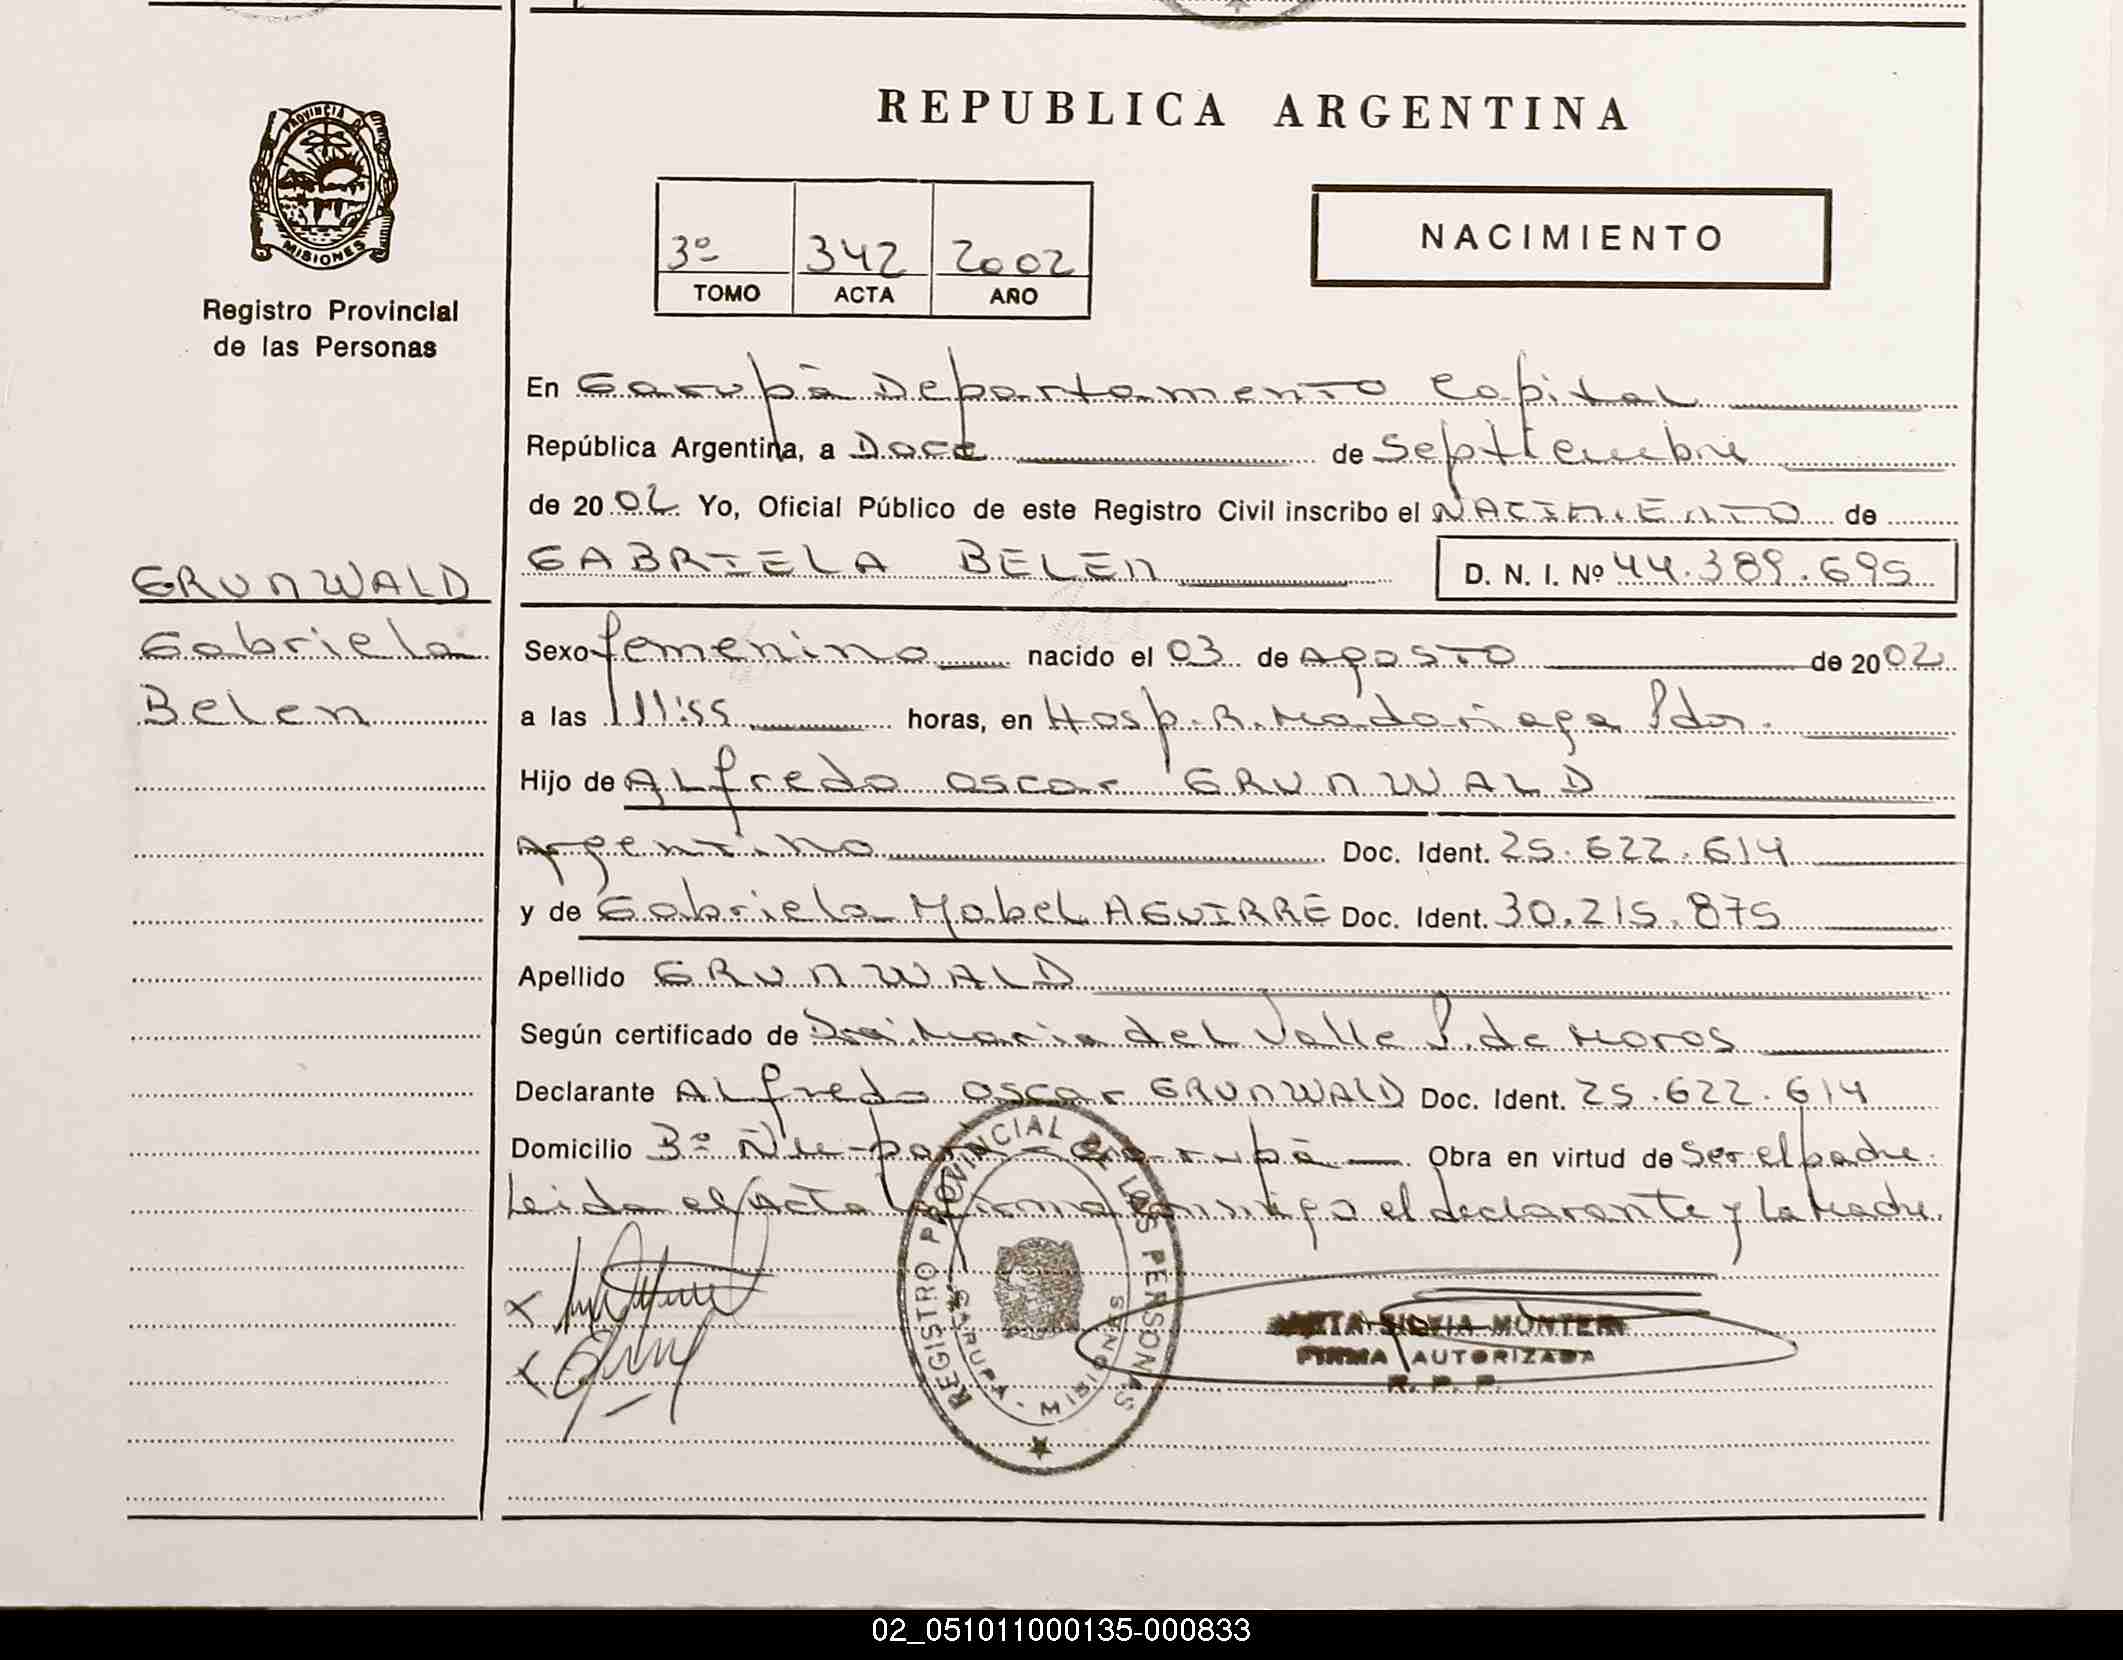 REPUBLICA ARGENTINA
PROVINCIA DE
MISIONES
Registro Provincial
de las Personas
3º 342 2002
TOMO ACTA AÑO
NACIMIENTO
En Garupá Departamento Capital
República Argentina, a Doce de Septiembre
de 2002 Yo, Oficial Público de este Registro Civil inscribo el NACIMIENTO de
GABRIELA BELEN D. N. I. Nº 44.389.695
GRUNWALD
Gabriela
Belen
Sexo femenino nacido el 03 de Agosto de 2002
a las 11:55 horas, en Hosp. R. Madariaga Pdas.
Hijo de Alfredo Oscar GRUNWALD
Argentino Doc. Ident. 25.622.614
y de Gabriela Mabel AGUIRRE Doc. Ident. 30.215.875
Apellido GRUNWALD
Según certificado de Dra. Maria del Valle P. de Moros
Declarante Alfredo Oscar GRUNWALD Doc. Ident. 25.622.614
Domicilio Bº Ñu-porá - Garupá Obra en virtud de Ser el padre.
Leida el Acta la firma conmigo el declarante y la Madre.
REGISTRO PROVINCIAL DE LAS PERSONAS
GARUPA - MISIONES
SILVIA MONTER
FIRMA AUTORIZADA
R. P. P.
02_051011000135-000833